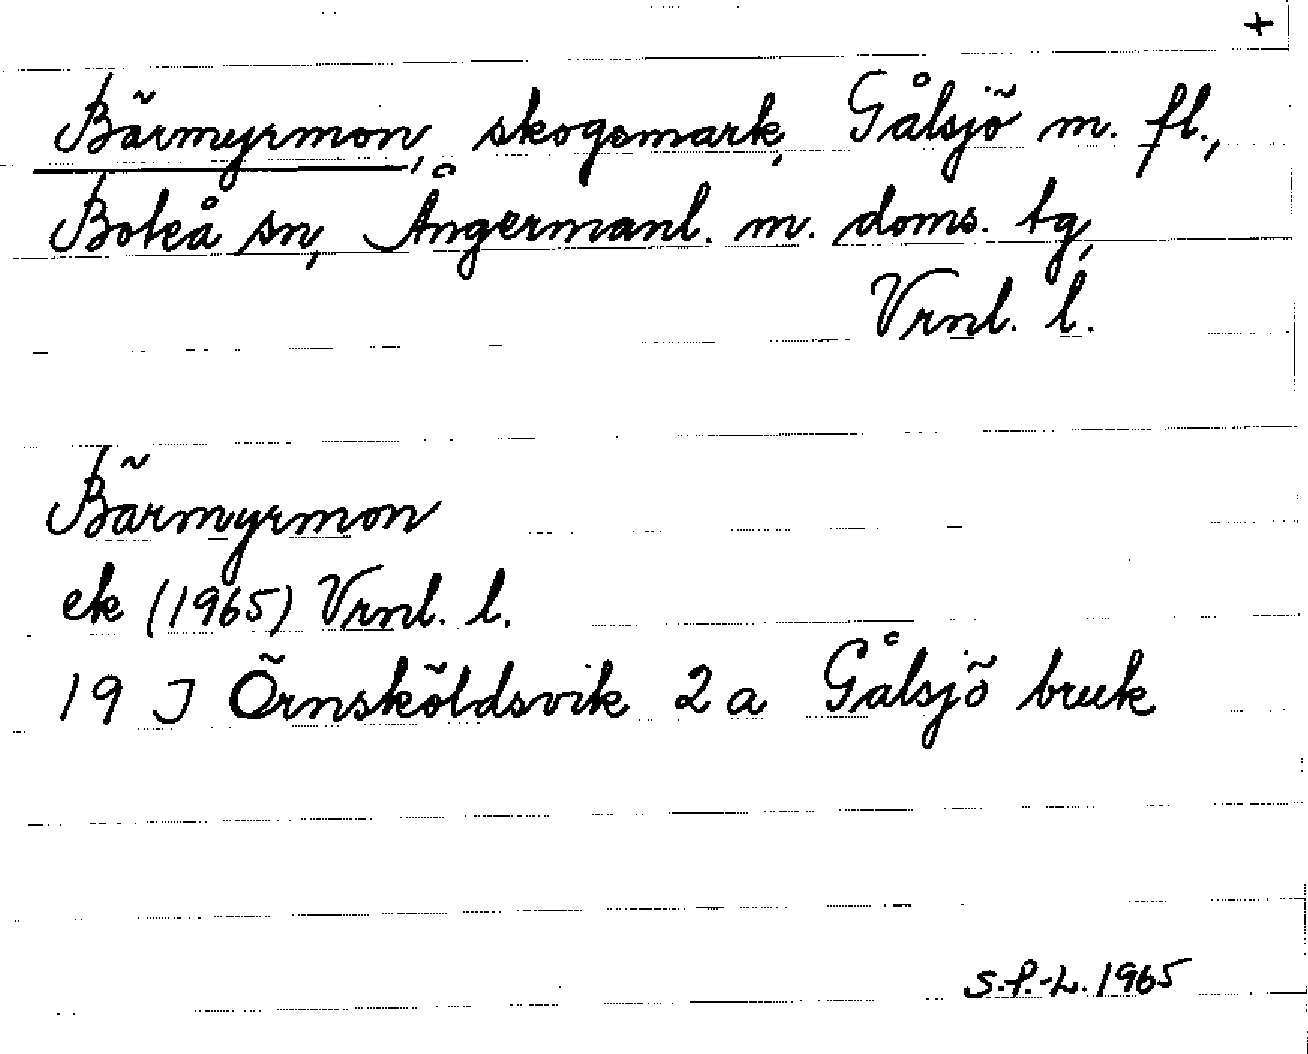 +
Bärmyrmon, skogsmark, Gålsjö m. fl.,
Boteå sn, Ångermanl. m. doms. tg,
Vrnl. l.
Bärmyrmon
ek (1965) Vrnl. l.
19 J Örnsköldsvik 2 a Gålsjö bruk
S.P.-L. 1965